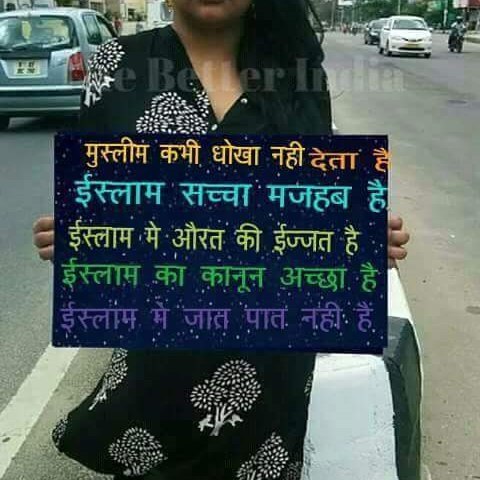 The Better India
मुस्लीम कभी धोखा नही देता है
ईस्लाम सच्चा मजहब है
ईस्लाम मे औरत की ईज्जत है
ईस्लाम का कानून अच्छा है
ईस्लाम मे जात पात नही है